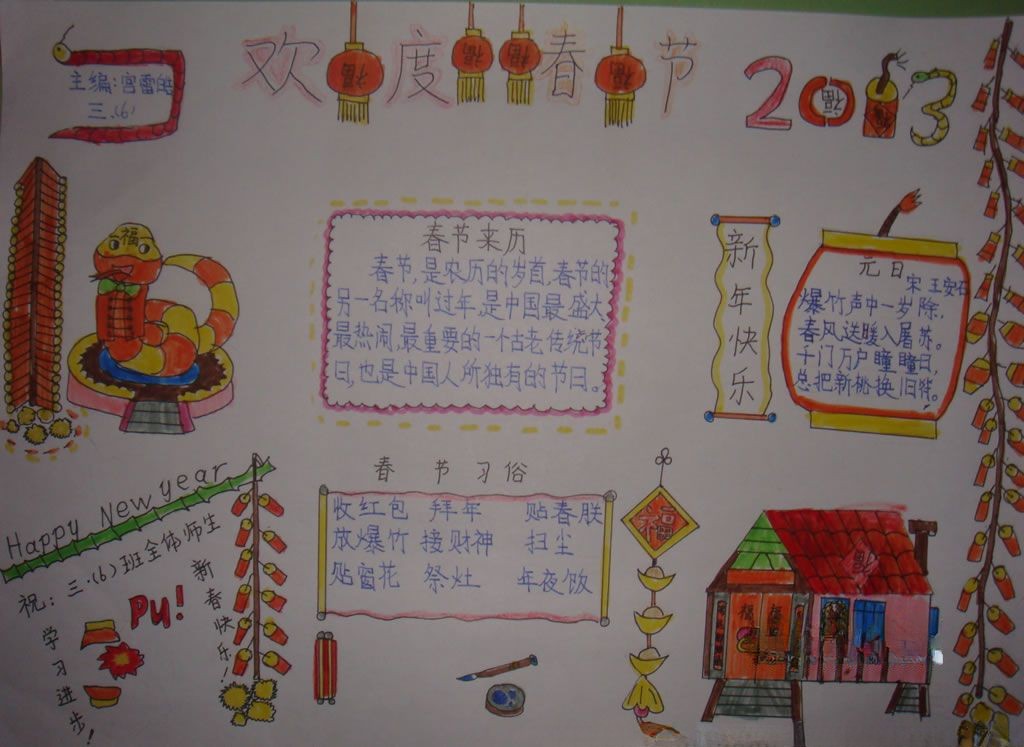 欢度春节
福
福
福
福
2013
福
福
主编:宫雷皓
三.(6)
福
春节来历
春节,是农历的岁首,春节的
另一名称叫过年,是中国最盛大
最热闹,最重要的一个古老传统节
日,也是中国人所独有的节日。
新年快乐
元日
宋 王安石
爆竹声中一岁除,
春风送暖入屠苏。
千门万户瞳瞳日,
总把新桃换旧符。
Happy New year
祝:三.(6)班全体师生
新春快乐!
学习进步!
PU!
春节习俗
收红包 拜年 贴春联
放爆竹 接财神 扫尘
贴窗花 祭灶 年夜饭
福
福
福
福